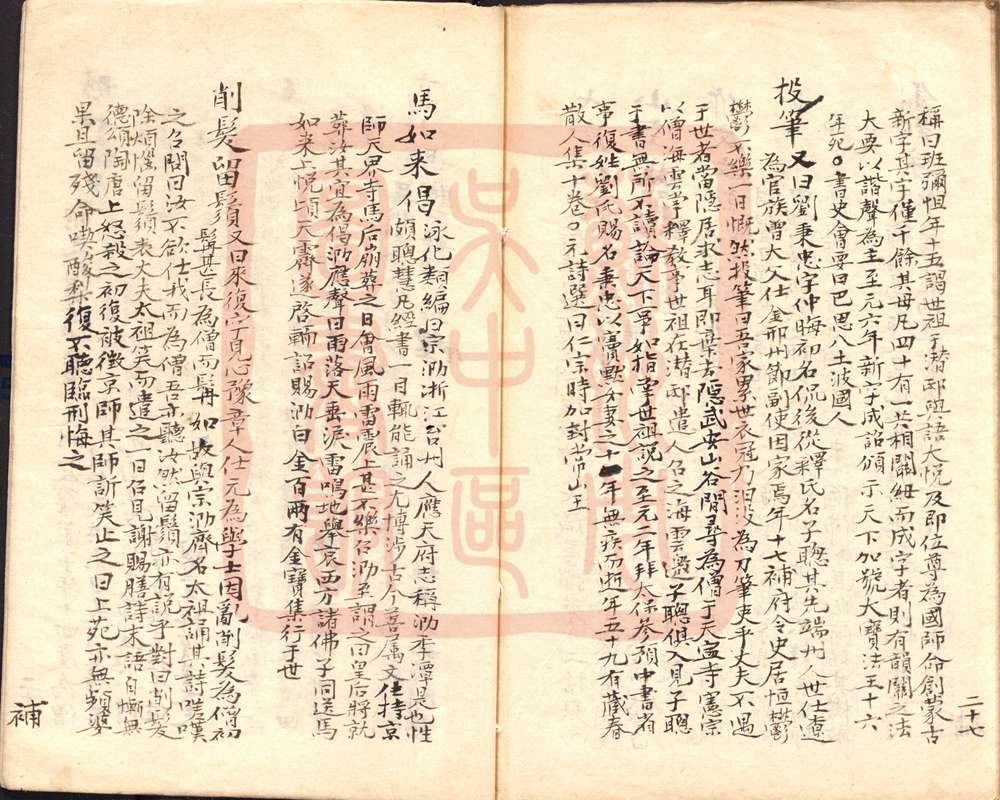 稱曰班彌怛年十五謁世祖于潛邸與語大悦及即位尊為國師命創蒙古
新字其字僅千餘其母凡四十有一共相關紐而成字者則有韻關之法
大要以諧聲為主至元六年新字成詔頒示天下加號大寶法王十六
年死〇書史會要曰巴思八土波國人
投筆又曰劉秉忠字仲晦初名侃後從釋氏名子聰其先端州人世仕遼
為官族曾大父仕金邢州節副使因家焉年十七補府令史居恒鬱
鬱不樂一日慨然投筆曰吾家累世衣冠乃汩没為刀筆吏乎丈夫不遇
于世者當隱居求志耳即棄去隱武安山谷間尋為僧于天寍寺憲宗
以僧海雲掌釋教事世祖在潛邸遣人召之海雲還子聰俱入見子聰
于書無所不讀論天下事如指掌世祖說之至元二年拜太保參預中書省
事復姓劉氏賜名秉忠以竇默次妻之十一年無疾而逝年五十九有藏春
散人集十卷〇元詩選曰仁宗時加封常山王
二十七
馬如来偈 泳化類編曰宗泐浙江台州人應天府志稱泐季潭是也性
頗聰慧凡經書一目輒能誦之尤博涉古今善属文住持京
師天界寺馬后崩葬之日會風雨雷震上甚不樂召泐至謂之曰皇后將就
葬汝其宜為偈泐應聲曰雨落天垂淚雷鳴地舉哀西方諸佛子同送馬
如来上悦頃天霽遂啓輀詔賜泐白金百兩有全寶集行于世
削髮留鬚又曰来復字見心豫章人仕元為學士因亂削髮為僧初
髯甚長為僧而髯如故與宗泐齊名太祖誦其詩嗟嘆
之召問曰汝不欲仕我而為僧吾亦聽汝然留鬚亦有説乎對曰削髮
除煩惱留鬚表丈夫太祖笑而遣之一日召見謝賜膳詩末語自慚無
德頌陶唐上怒殺之初復被徵京師其師訢笑止之曰上苑亦無頻婆
果且留殘命喫酸梨復不聽臨刑悔之
補